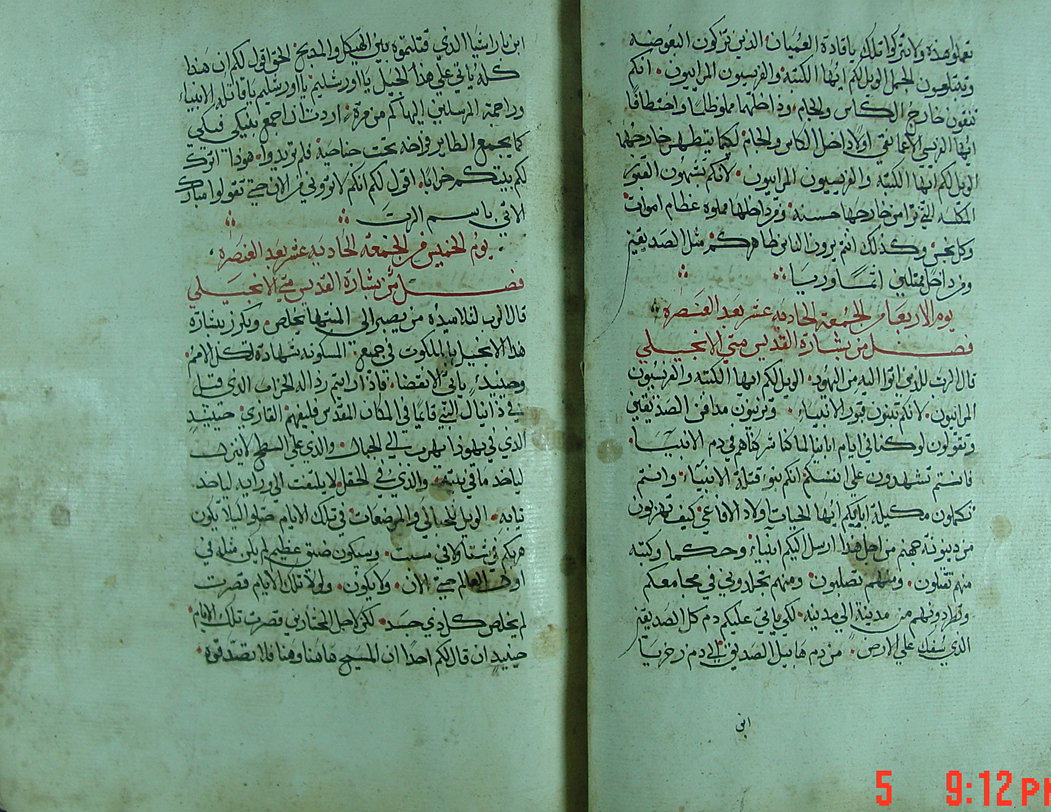 تعملوا هذه ولا تتركوا تلك يا قادة العميان الذين تتركون البعوضه
وتبتلعون الجمل الويل لكم ايها الكتبة والفريسيون المراييون • انكم
تنقون خارج الكاس والجام • وداخلها مملوظلما واختطافا
ايها الفريسى الاعما نقى اولا داخل الكاس والجام لكيما يتطهر خارجهما
الويل لكم ايها الكتبة والفريسيون المراييون • لانكم تشبهون القبور
المكلسه التي ترا من خارجها حسنه • ومن داخلها مملوه عظام اموات
وكل نجس • وكذلك انتم يرون الناس ظاهركم مثل الصديقين
ومن داخل ممتليين اثما وريا
يوم الاربعا من الجمعة الحاديه عشر بعد العنصره
فصل من بشارة القديس متي الانجيلي
قال الرب للذين اتوا اليه من اليهود • الويل لكم ايها الكتبة والفريسيون
المراييون • لانكم تبنون قبور الانبياء • وتزينون مدافن الصديقين
وتقولون لو كنا في ايام ابائنا لما كنا شركاهم في دم الانبيا
فانتم تشهدون علي نفسكم انكم بنوا قتلة الانبياء • وانتم
تكملون مكيلة اباييكم ايها الحيات اولاد الافاعي • كيف تهربون
من دينونة جهنم من اجل هذا ارسل اليكم انبياء وحكما وكتبه
منهم تقتلون • ومنهم تصلبون • ومنهم تجلدون في مجامعكم
وتطردونهم من مدينة الي مدينه • لكي ياتي عليكم دم كل الصديقين
الذي سفك علي الارض • من دم هابيل الصديق الي دم زخريا
ابن
ابن باراشيا الذي قتلتموه بين الهيكل والمذبح الحق اقول لكم ان هذا
كله ياتي علي هذا الجيل يا اورشليم يا اورشليم يا قاتلة الانبياء
وراجمة المرسلين اليها كم من مرة • اردت ان اجمع بنيكي فيكي
كما يجمع الطاير فراخه تحت جناحيه فلم تريدوا • هوذا اترك
لكم بيتكم خرابا • اقول لكم انكم لا تروني من الان حتي تقولوا مبارك
الاتي باسم الرب
يوم الخميس من الجمعه الحاديه عشر بعد العنصره
فصل من بشارة القديس متي الانجيلي
قال الرب لتلاميذه من يصبر الى المنتها يخلص • ويكرز ببشارة
هذا الانجيل بالملكوت في جميع المسكونه شهادة لكل الامم •
وحينيد ياتي الانقضا • فاذا رايتم رذاله الخراب الذي قيل
في دانيال النبي قايما في المكان المقدس فليفهم القاري • حينيد
الذي في يهودا يهرب الي الجبال • والذي على السطح لا ينزل
لياخذ ما في بيته • والذي في الحقل لا يلتفت الى ورايه لياخد
ثيابه • الويل للحبالي والمرضعات في تلك الايام صلوا ليلا يكون
هربكم في شتا ولا في سبت • وسيكون ضيق عظيم لم يكن مثله في
اول العالم حتي الان • ولا يكون • ولولا تلك الايام قصرت
لم يخلص كل ذي جسد • لكن لاجل المختارين قصرت تلك الايام
حينيد ان قال لكم احدا ان المسيح هاهنا وهنا فلا تصدقوه •
5 9:12 PM